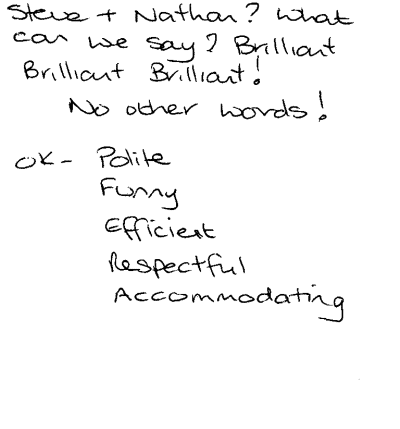 Steve + Nathan? What
can we say? Brilliant
Brilliant Brilliant!
No other words!
OK - Polite
Funny
Efficient
Respectful
Accommodating